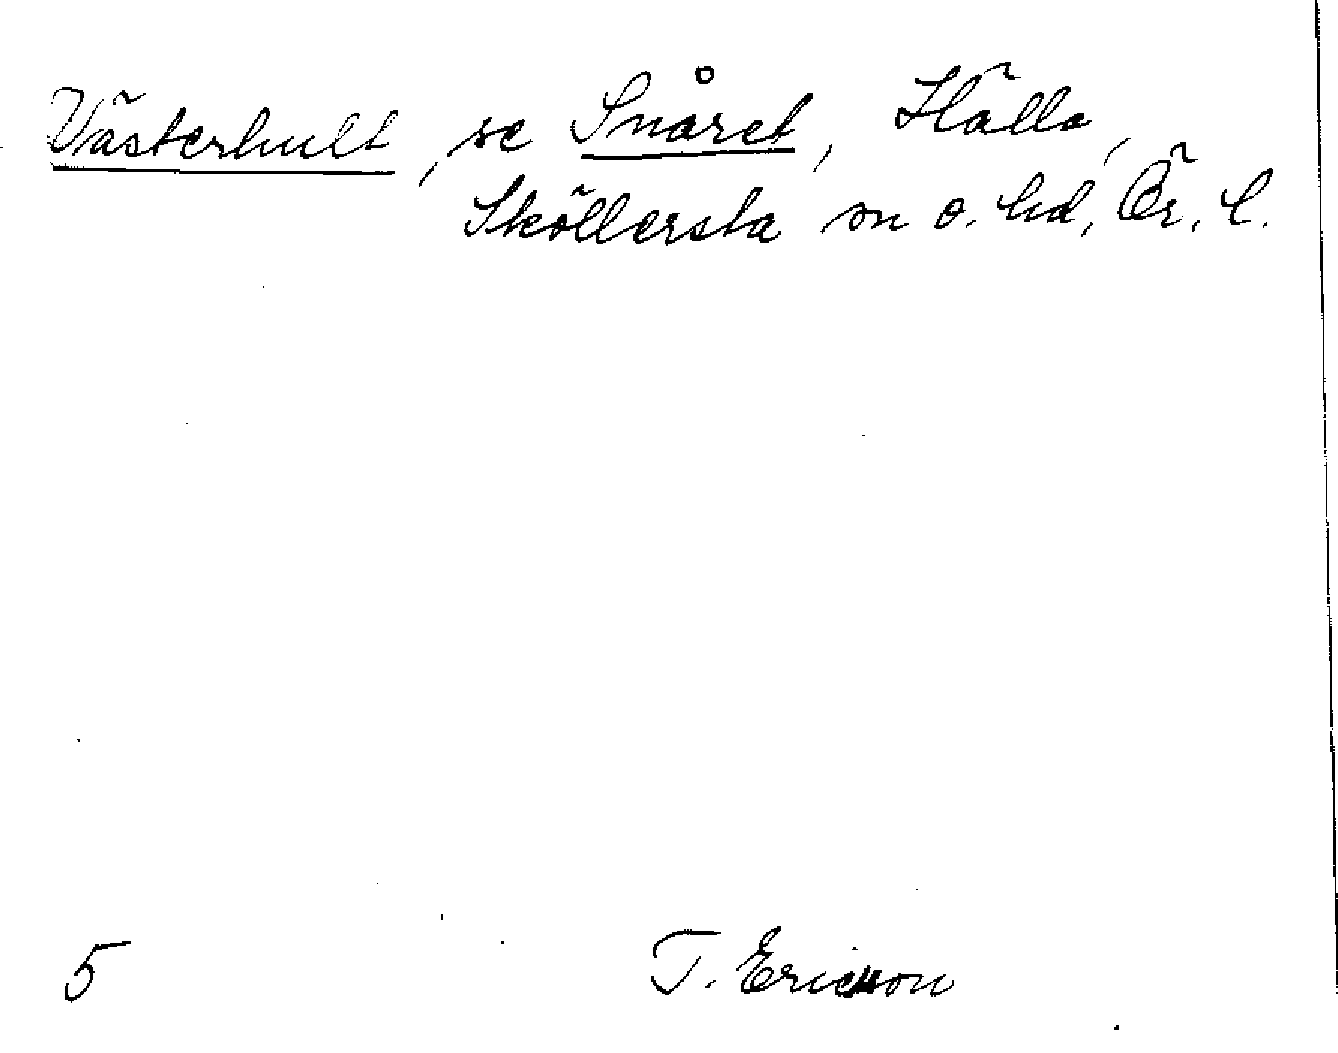 Västerhult, se Snåret, Hälla,
Sköllersta sn o. hd, Ör. l.
5 T. Ericsson